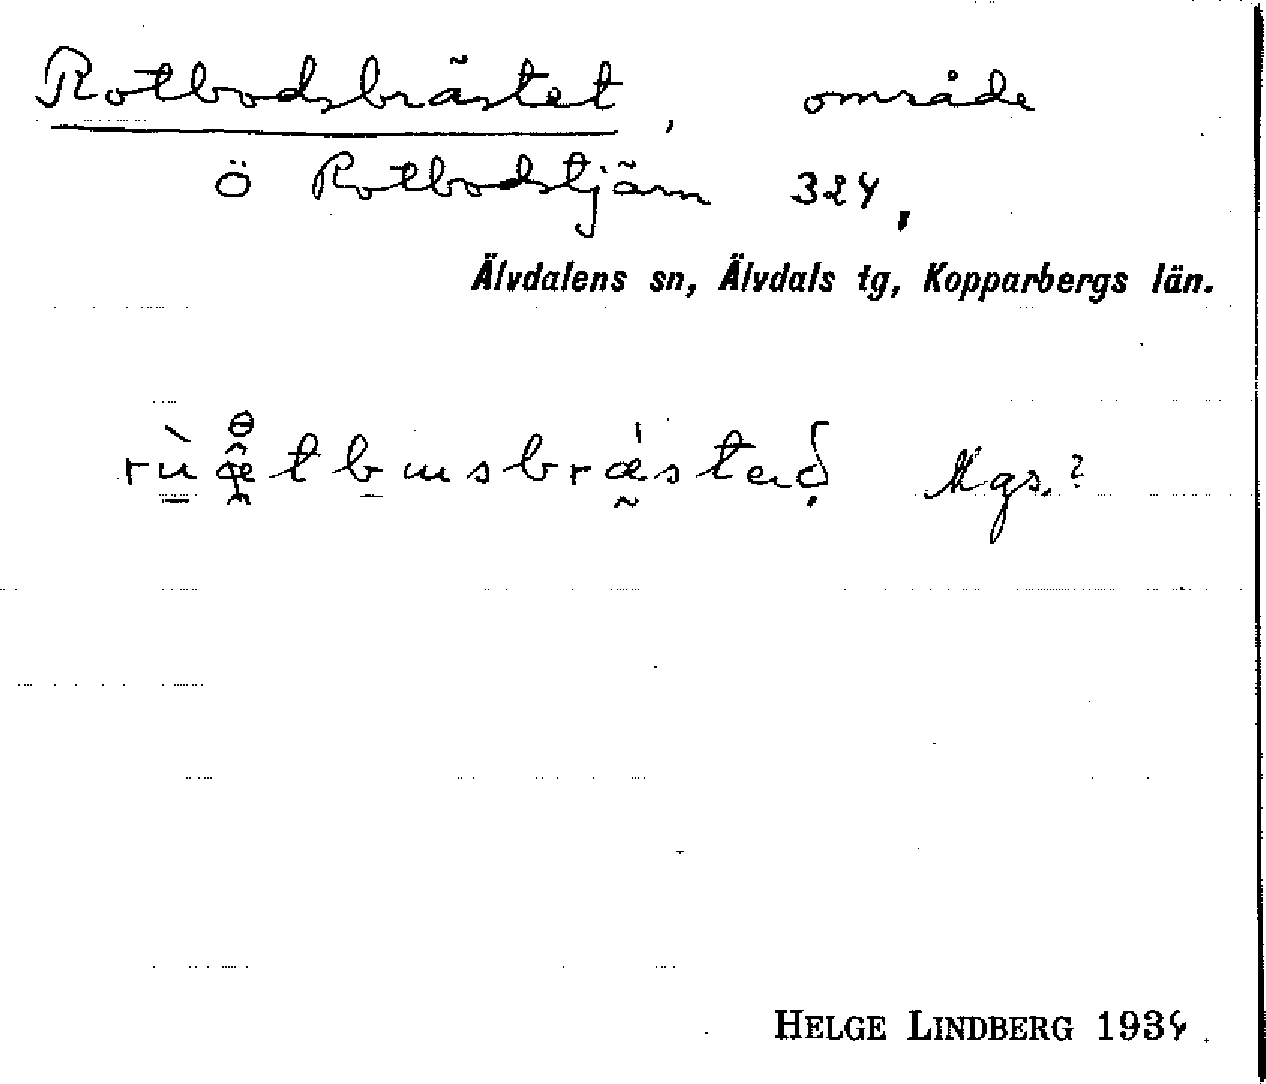 Rotbodsbrästet, område
ö Rotbodstjärn 324,
Älvdalens sn, Älvdals tg, Kopparbergs län.
Mgs.?
HELGE LINDBERG 1934.